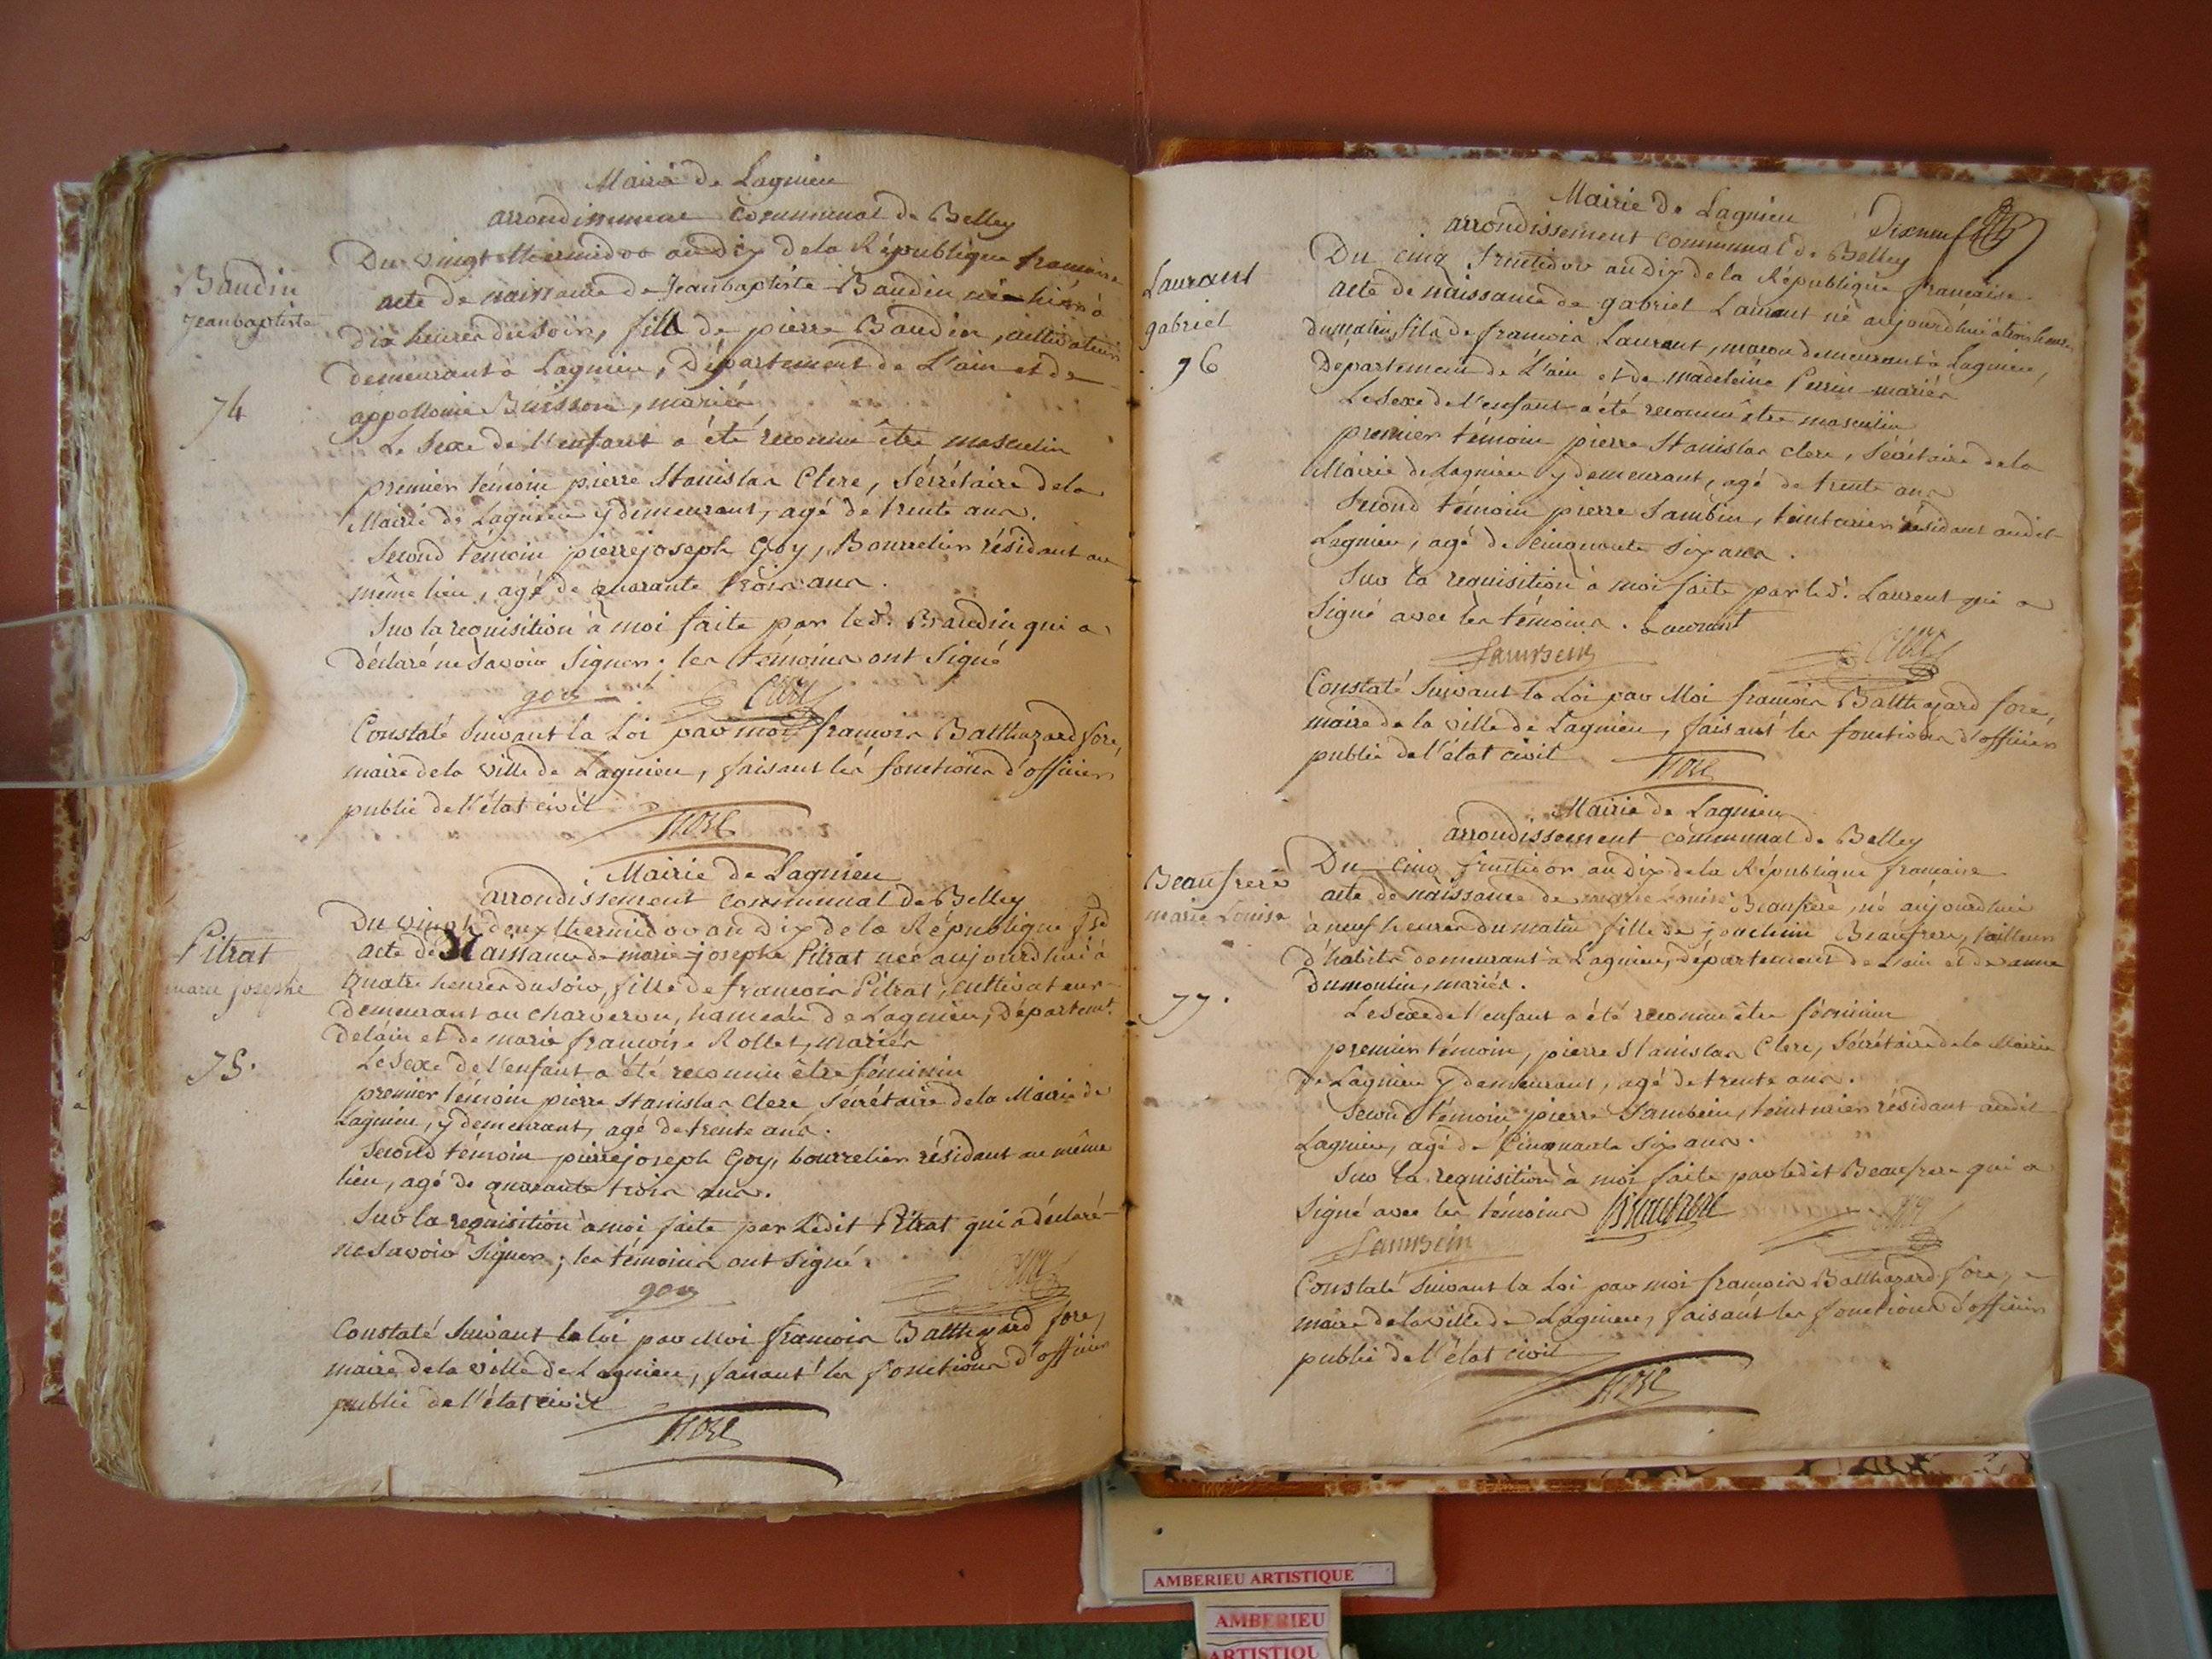 Mairie de Lagnieu
arrondissement communal de Belley
Du vingt thermidor an dix de la République francaise
Baudin
Jeanbaptiste
74
acte de naissance de Jeanbaptiste Baudin né hier à
dix heures du soir, fils de pierre Baudin, cultivateur
demeurant à Lagnieu, Département de L'ain et de
appollonie Buisson, mariés
Le Sexe de l'enfant a été reconnu être masculin
premier témoin pierre Stanislas Clerc, Sécrétaire de la
Mairie de Lagnieu y demeurant, agé de trente ans.
Second témoin pierre joseph Goy, Bourrelier résidant au
même lieu, agé de quarante trois ans.
Sur la requisition à moi faite par led. Baudin qui a
déclaré ne Savoir Signer; les témoins ont Signé
goy Clerc
Constaté Suivant la Loi par moi francois Balthazard fore,
maire de la ville de Lagnieu, faisant les fonctions d'officier
public de l'état civil
fore
Mairie de Lagnieu
arrondissement communal de Belley
Du vingt deux thermidor an dix de la République fse
Pitrat
marie josephe
75.
acte de Naissance de marie josephe Pitrat née aujourdhui à
quatre heures du soir, fille de francois Pitrat, cultivateur
demeurant au charveron, hameau de Lagnieu, départemt.
delain et de marie francoise Rollet, mariés
Le Sexe de l'enfant a été reconnu être féminin
premier témoin pierre Stanislas Clerc Sécrétaire de la Mairie de
Lagnieu, y demeurant, agé de trente ans.
Second témoin pierre joseph Goy, bourrelier résidant au même
lieu, agé de quarante trois ans.
Sur la requisition à moi faite par Ledit Pitrat qui a déclaré
ne Savoir Signer; les témoins ont Signé.
goy Clerc
Constaté Suivant la loi par Moi francois Balthazard fore,
maire de la ville de Lagnieu, faisant les fonctions d'officier
public de l'état civil
fore
Mairie de Lagnieu
arrondissement communal de Belley
Du cinq fructidor an dix de la République francaise.
Laurant
gabriel
76
acte de naissance de gabriel Laurant né aujourdhui à trois heures
du matin, fils de francois Laurant, macon demeurant à Lagnieu,
Département de L'ain et de madeleine Perrin mariés
Le Sexe de l'enfant a été reconnu être masculin
premier témoin pierre Stanislas clerc, Sécrétaire de la
Mairie de Lagnieu y demeurant, agé de trente ans
Second témoin pierre Sambin, teinturier résidant audit
Lagnieu, agé de cinquante six ans.
Sur la requisition à moi faite par led. Laurent qui a
Signé avec les témoins. Laurant
Clerc
Constaté Suivant la Loi par Moi francois Balthazard fore,
maire de la ville de Lagnieu, faisant les fonctions d'officier
public de l'état civil
fore
Mairie de Lagnieu
arrondissement communal de Belley
Du cinq fructidor an dix de la République francaise
Beaufrere
marie Louise
77.
acte de naissance de marie Louise Beaufrere, né aujourdhui
à neuf heures du matin fille de joachim Beaufrere, tailleur
d'habits demeurant à Lagnieu, département de l'ain et de anne
Dumoulin, mariés.
Le Sexe de l'enfant a été reconnu être féminin
premier témoin, pierre Stanislas Clerc, Sécrétaire de la Mairie
de Lagnieu y demeurant, agé de trente ans.
Second témoin pierre Sambein, teinturier résidant audit
Lagnieu, agé de Cinquante six ans.
Sur la requisition à moi faite par ledit Beaufrere qui a
Signé avec les témoins Beaufrere
Clerc
Constaté Suivant la Loi par moi francois Balthazard fore,
maire de la ville de Lagnieu, faisant les fonctions d'officier
public de l'état civil
fore
AMBERIEU ARTISTIQUE
AMBERIEU
ARTISTIQU